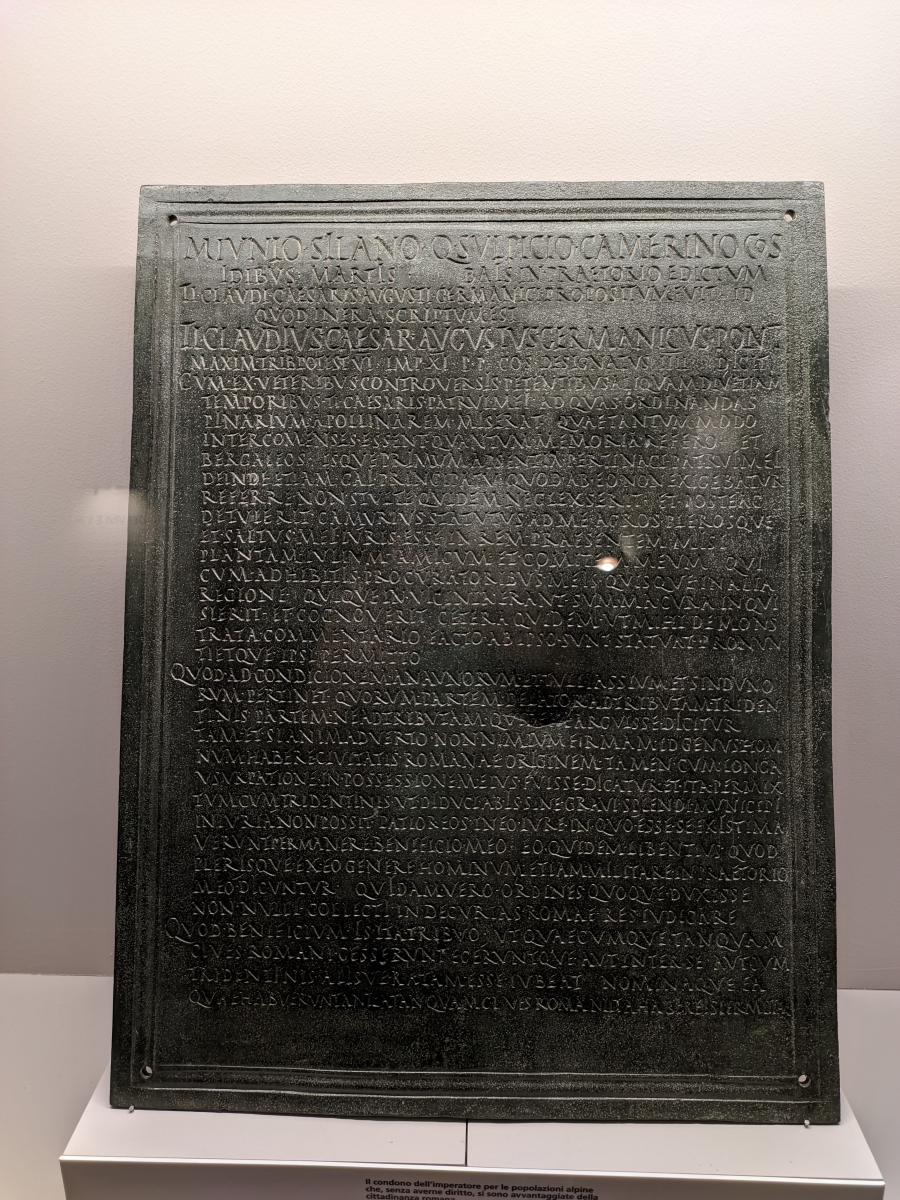 M IVNIO SILANO Q SVLPICIO CAMERINO COS
IDIBVS MARTIS BAIS IN PRAETORIO EDICTVM
TI CLAVDI CAESARIS AVGVSTI GERMANICI PROPOSITVM FVIT ID
QVOD INFRA SCRIPTVM EST
TI CLAVDIVS CAESAR AVGVSTVS GERMANICVS PONT
MAXIM TRIB POTEST VI IMP XI P P COS DESIGNATVS IIII DICIT
CVM EX VETERIBVS CONTROVERSIS PETENTIBVS ALIQVAMDIV ETIAM
TEMPORIBVS TI CAESARIS PATRVI MEI AD QVAS ORDINANDAS
PINARIVM APOLLINAREM MISERAT QVAE TANTVM MODO
INTER COMENSES ESSENT QVANTVM MEMORIA REFERO ET
BERGALEOS ISQVE PRIMVM APSENTIA PERTINACI PATRVI MEI
DEINDE ETIAM GAI PRINCIPATV QVOD AB EO NON EXIGEBATVR
REFERRE NON STVLTE QVIDEM NEGLEXSERIT ET POSTEAC
DETVLERIT CAMVRIVS STATVTVS AD ME AGROS PLEROSQVE
ET SALTVS MEI IVRIS ESSE IN REM PRAESENTEM MISI
PLANTAM IVLIVM AMICVM ET COMITEM MEVM QVI
CVM ADHIBITIS PROCVRATORIBVS MEIS QVIQVE IN ALIA
REGIONE QVIQVE IN VICINIA ERANT SVMMA CVRA INQVI
SIERIT ET COGNOVERIT CETERA QVIDEM VT MIHI DEMONS
TRATA COMMENTARIO FACTO AB IPSO SVNT STATVAT PRONVN
TIETQVE IPSI PERMITTO
QVOD AD CONDICIONEM ANAVNORVM ET TVLLIASSIVM ET SINDVNO
RVM PERTINET QVORVM PARTEM DELATOR ADTRIBVTAM TRIDEN
TINIS PARTEM NE ADTRIBVTAM QVIDEM ARGVISSE DICITVR
TAMETSI ANIMADVERTO NON NIMIVM FIRMAM ID GENVS HOMI
NVM HABERE CIVITATIS ROMANAE ORIGINEM TAMEN CVM LONGA
VSVRPATIONE IN POSSESSIONEM EIVS FVISSE DICATVR ET ITA PERMIX
TVM CVM TRIDENTINIS VT DIDVCI AB IS SINE GRAVI SPLENDI MVNICIPI
INIVRIA NON POSSIT PATIOR EOS IN EO IVRE IN QVO ESSE SE EXISTIMA
VERVNT PERMANERE BENIFICIO MEO EO QVIDEM LIBENTIVS QVOD
PLERISQVE EX EO GENERE HOMINVM ETIAM MILITARE IN PRAETORIO
MEO DICVNTVR QVIDAM VERO ORDINES QVOQVE DVXISSE
NON NVLLI COLLECTI IN DECVRIAS ROMAE RES IVDICARE
QVOD BENIFICIVM IS ITA TRIBVO VT QVAECVMQVE TANQVAM
CIVES ROMANI GESSERVNT EGERVNTQVE AVT INTER SE AVT CVM
TRIDENTINIS ALISVE RATAM ESSE IVBEAT NOMINAQVE EA
QVAE HABVERVNT ANTEA TANQVAM CIVES ROMANI ITA HABERE IS PERMITTAM
Il condono dell'imperatore per le popolazioni alpine
che, senza averne diritto, si sono avvantaggiate della
cittadinanza romana